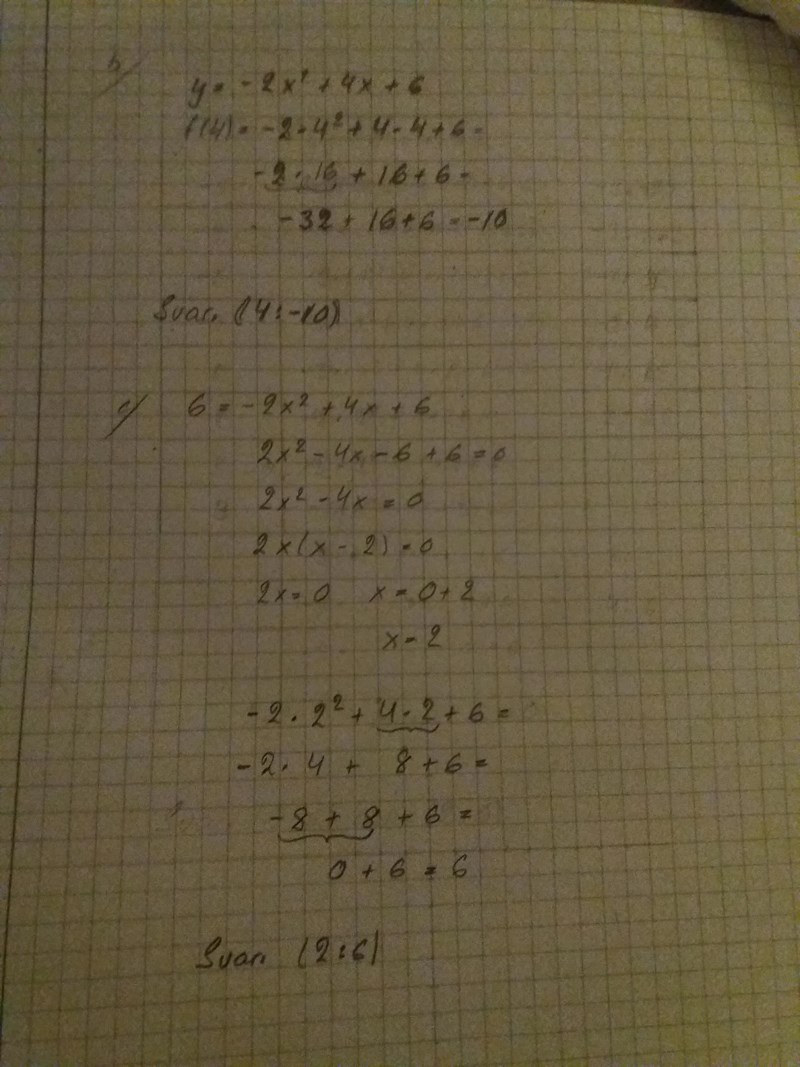 b/
y = -2x² + 4x + 6
f(4) = -2 · 4² + 4 · 4 + 6 =
-2 · 16 + 16 + 6 =
-32 + 16 + 6 = -10
Svar. (4:-10)
c/ 6 = -2x² + 4x + 6
2x² - 4x - 6 + 6 = 0
2x² - 4x = 0
2x(x - 2) = 0
2x = 0 x = 0 + 2
x = 2
-2 · 2² + 4 · 2 + 6 =
-2 · 4 + 8 + 6 =
-8 + 8 + 6 =
0 + 6 = 6
Svar. (2:6)